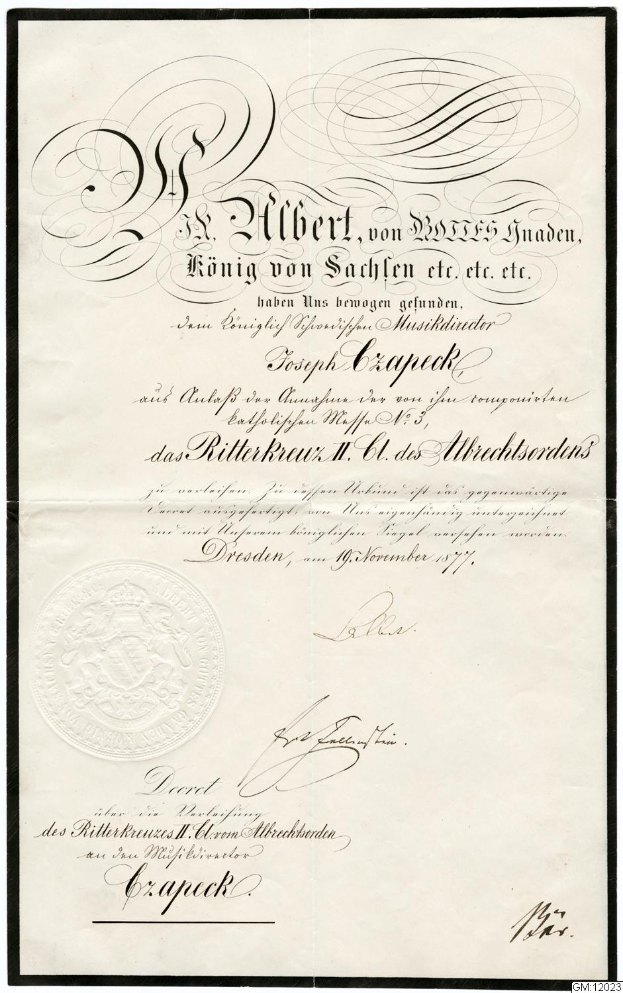 WIR, Albert, von GOTTES Gnaden,
König von Sachsen etc. etc. etc.
haben Uns bewogen gefunden,
dem Königlich Schwedischen Musikdirector
Joseph Czapeck,
aus Anlaß der Annahme der von ihm componirten
katholischen Messe No 3,
das Ritterkreuz II. Cl. des Albrechtsordens
zu verleihen. Zu dessen Urkund ist das gegenwärtige
Decret ausgefertigt, von Uns eigenhändig unterzeichnet
und mit Unserem königlichen Siegel versehen worden.
Dresden, am 19. November 1877.
Albert.
Decret
über die Verleihung
des Ritterkreuzes II. Cl. vom Albrechtsorden
an den Musikdirector
Czapeck.
GM:12023